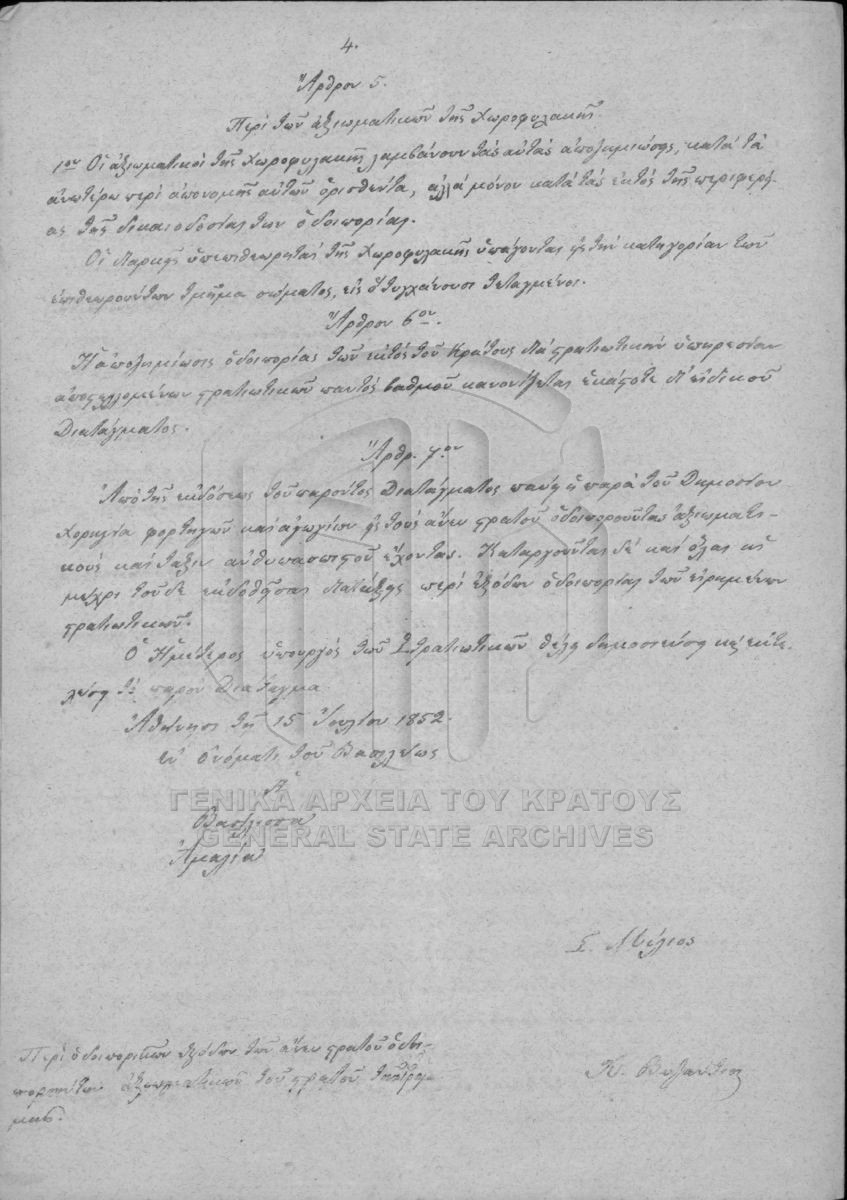 4.
Ἄρθρον 5.
Περὶ τῶν ἀξιωματικῶν τῆς Χωροφυλακῆς.
1ον Οἱ ἀξιωματικοὶ τῆς Χωροφυλακῆς λαμβάνουν τὰς αὐτὰς ἀποζημιώσεις, κατὰ τὰ
ἀνωτέρω περὶ ἀπονομῆς αὐτῶν ὁρισθέντα, ἀλλὰ μόνον κατὰ τὰς ἐκτὸς τῆς περιφερεί-
ας τῆς δικαιοδοσίας των ὁδοιπορίας.
Οἱ Μοίραρχοι ὑπεπιθεωρηταὶ τῆς Χωροφυλακῆς ὑπάγονται εἰς τὴν κατηγορίαν τῶν
ἐπιθεωρούντων τμῆμα σώματος, εἰς ὃ τυγχάνουσι τεταγμένοι.
Ἄρθρον 6ον.
Ἡ ἀποζημίωσις ὁδοιπορίας τῶν ἐκτὸς τοῦ Κράτους διὰ στρατιωτικὴν ὑπηρεσίαν
ἀποστελλομένων στρατιωτικῶν παντὸς βαθμοῦ κανονίζεται ἑκάστοτε δι' εἰδικοῦ
Διατάγματος.
Ἄρθρ. 7ον
Ἀπὸ τῆς ἐκδόσεως τοῦ παρόντος Διατάγματος παύει ἡ παρὰ τοῦ Δημοσίου
χορηγία φορτηγῶν καὶ ἀγωγίων εἰς τοὺς ἄνευ στρατοῦ ὁδοιποροῦντας ἀξιωματι-
κοὺς καὶ τάξιν ἀνθυπασπιστοῦ ἔχοντας. Καταργοῦνται δὲ καὶ ὅλαι αἱ
μέχρι τοῦδε ἐκδοθεῖσαι διατάξεις περὶ ἐξόδων ὁδοιπορίας τῶν εἰρημένων
στρατιωτικῶν.
Ὁ Ἡμέτερος ὑπουργὸς τῶν Στρατιωτικῶν θέλει δημοσιεύσει καὶ ἐκτε-
λέσει τὸ παρὸν Διάταγμα
Ἀθήνησι τῇ 15 Ἰουλίου 1852.
ἐν ὀνόματι τοῦ Βασιλέως
Ἡ
Βασίλισσα
Ἀμαλία
ΓΕΝΙΚΑ ΑΡΧΕΙΑ ΤΟΥ ΚΡΑΤΟΥΣ
GENERAL STATE ARCHIVES
Σ. Μίλιος
Περὶ ὁδοιπορικῶν ἐξόδων τῶν ἄνευ στρατοῦ ὁδοι-
πορούντων ἀξιωματικῶν τοῦ στρατοῦ τῆς ξηρᾶς